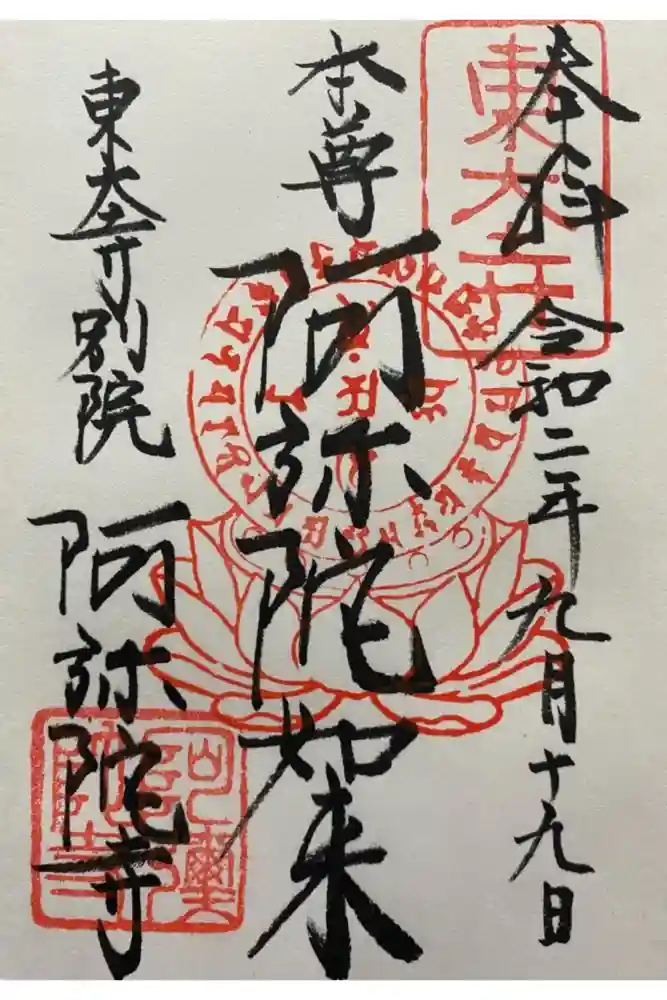 奉拝 令和二年 九月十九日
東大寺
本尊 阿弥陀如来
東大寺別院 阿弥陀寺